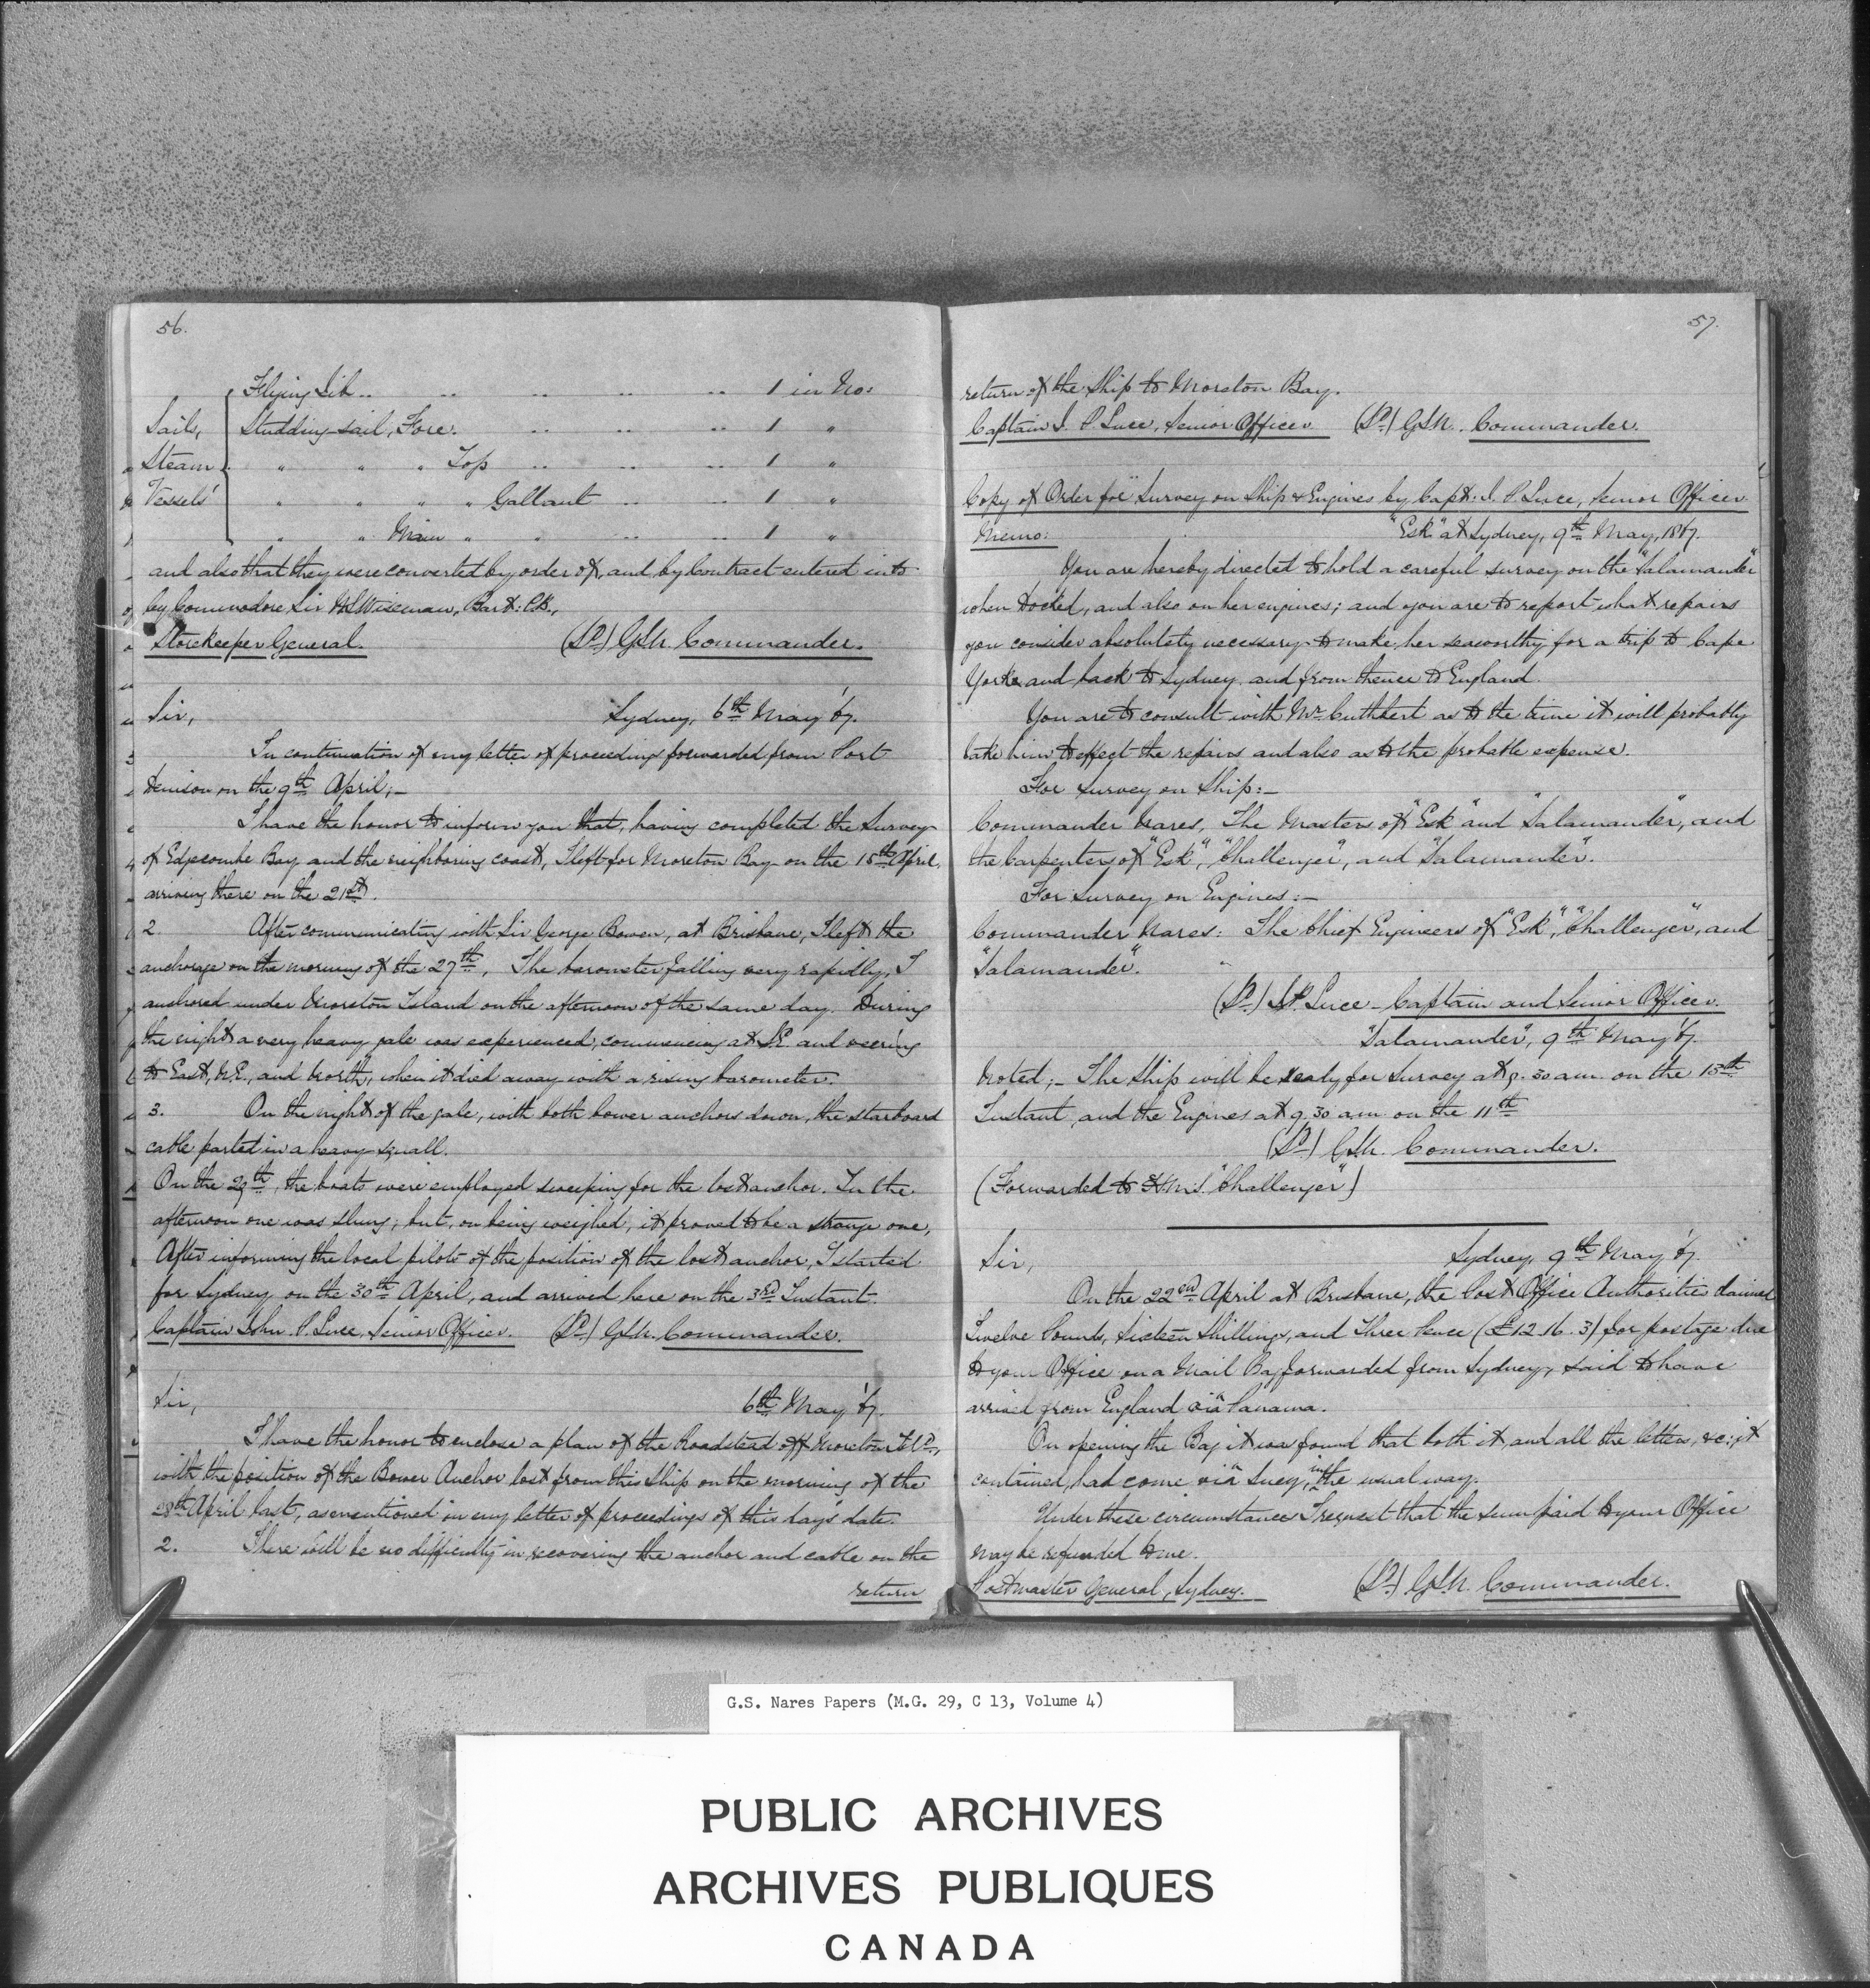 56.
Flying Jib .. .. .. .. .. 1 in No:
Sails, Studding-sail, Fore. .. .. .. 1 "
Steam " " " Top .. .. .. 1 "
Vessels' " " " " Gallant .. .. 1 "
" " Main " " .. .. 1 "
and also that they were converted by order of, and by Contract entered into
by Commodore Sir W.S. Wiseman, Bart: C.B.,
Storekeeper General. (Sd.) G.S.N. Commander.
Sir, Sydney, 6th May '67.
In continuation of my letter of proceeding forwarded from Port
Denison on the 9th April;—
I have the honor to inform you that, having completed the Survey
of Edgecombe Bay and the neighboring coast, I left for Moreton Bay on the 15th April,
arriving there on the 21st.
2. After communicating with Sir George Bowen, at Brisbane, I left the
anchorage on the morning of the 27th. The barometer falling very rapidly, I
anchored under Moreton Island on the afternoon of the same day. During
the night a very heavy gale was experienced, commencing at S.E. and veering
to East, N.E., and North, when it died away with a rising barometer.
3. On the night of the gale, with both bower anchors down, the starboard
cable parted in a heavy squall.
On the 29th, the boats were employed sweeping for the lost anchor. In the
afternoon one was slung; but, on being weighed, it proved to be a strange one,
After informing the local pilots of the position of the lost anchor, I started
for Sydney on the 30th April, and arrived here on the 3rd Instant.
Captain John P. Luce, Senior Officer. (Sd.) G.S.N. Commander.
Sir, 6th May '67.
I have the honor to enclose a plan of the Roadstead off Moreton Isld.,
with the position of the Bower Anchor lost from this Ship on the morning of the
28th April last, as mentioned in my letter of proceedings of this day's date.
2. There will be no difficulty in recovering the anchor and cable on the
return
57.
return of the Ship to Moreton Bay.
Captain J. P. Luce, Senior Officer (Sd.) G.S.N. Commander.
Copy of Order for Survey on Ship & Engines by Capt: J. P. Luce, Senior Officer.
Memo: "Esk" at Sydney, 9th May, 1867.
You are hereby directed to hold a careful survey on the "Salamander"
when docked, and also on her engines; and you are to report what repairs
you consider absolutely necessary to make her seaworthy for a trip to Cape
York and back to Sydney and from thence to England.
You are to consult with Mr. Cuthbert as to the time it will probably
take him to effect the repairs and also as to the probable expense.
For Survey on Ship:—
Commander Nares, The Masters of "Esk" and "Salamander", and
the Carpenters of "Esk", "Challenger", and "Salamander".
For Survey on Engines:—
Commander Nares: The Chief Engineers of "Esk", "Challenger", and
"Salamander".
(Sd.) J.P. Luce - Captain and Senior Officer.
"Salamander", 9th May '67.
Noted;— The Ship will be ready for Survey at 9.30 am. on the 13th
Instant, and the Engines at 9.30 am on the 11th
(Sd.) G.S.N. Commander.
(Forwarded to H.M.S. "Challenger")
Sir, Sydney, 9th May '67.
On the 22nd April at Brisbane, the Post Office Authorities claimed
Twelve Pounds, Sixteen Shillings, and Three Pence (£12.16.3) for postage due
to your Office on a Mail Bag forwarded from Sydney, said to have
arrived from England via Panama.
On opening the Bag it was found that both it, and all the letters, &c: it
contained, had come via Suez, in the usual way.
Under these circumstances I request that the sum paid to your Office
may be refunded to me.
Postmaster General, Sydney. (Sd.) G.S.N. Commander.
G.S. Nares Papers (M.G. 29, C 13, Volume 4)
PUBLIC ARCHIVES
ARCHIVES PUBLIQUES
CANADA